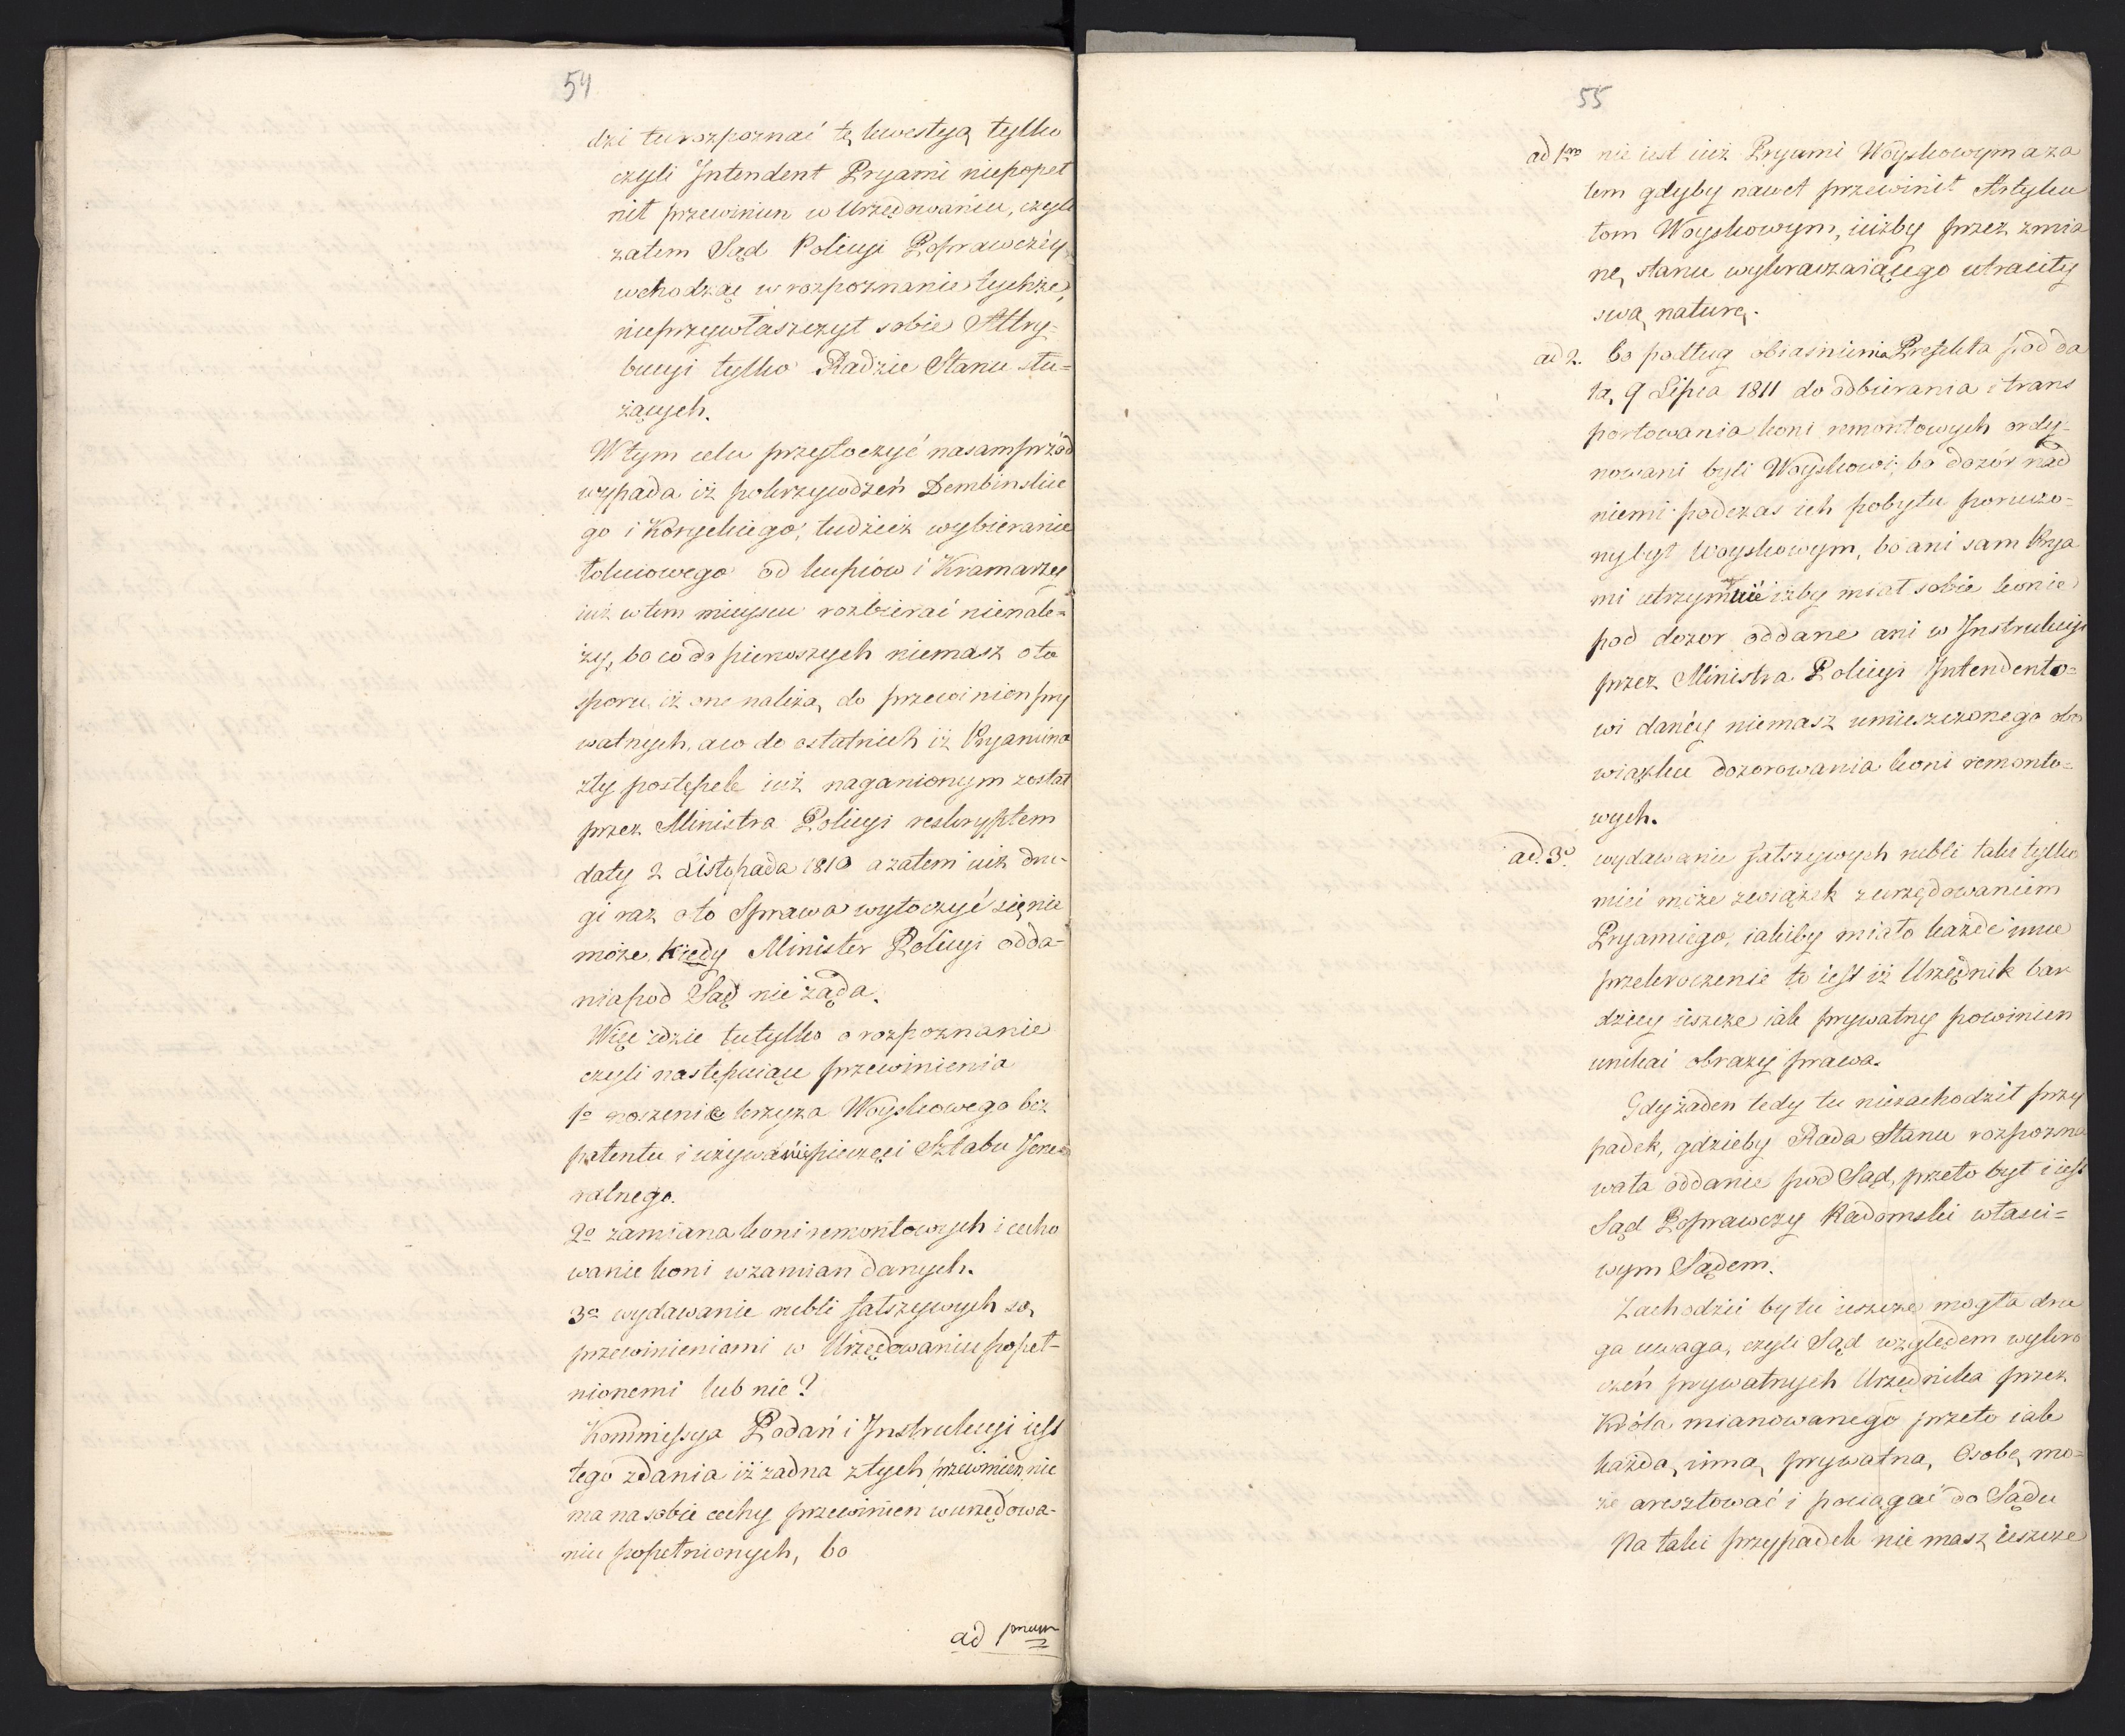 54
dzi tu rozpoznać tę kwestyą tylko
czyli Intendent Pryami niepopeł
nił przewinien w Urzędowaniu, czyli
zatem Sąd Policyi Poprawczéy
wchodząc w rozpoznanie tychże,
nieprzywłaszczył sobie Attry=
bucyi tylko Radzie Stanu słu=
żących.
W tym celu przytoczyć nasamprzód
wypada iż pokrzywdzeń Dembinskie
go i Koryckiego, tudzież wybieranie
łokciowego od kupców i Kramarzy
iuż w tem mieyscu rozbierać nienale=
ży, bo co do pierwszych niemasz o to
sporu iż one należą do przewinien pry
watnych, a co do ostatnich iż Pryamina
zły postępek iuż naganionym został
przez Ministra Policyi reskryptem
daty 2 Listopada 1810 a zatem iuż dru-
gi raz o to Sprawa wytoczyć się nie
może, kiedy Minister Policyi odda-
nia pod Sąd nie żąda.
Więc idzie tu tylko o rozpoznanie
czyli następuiące przewinienia
1o noszenie krzyża Woyskowego bez
patentu i używanie pieczęci Sztabu Jene
ralnego.
2o zamiana koni remontowych i cecho
wanie koni w zamian danych.
3o wydawanie rubli fałszywych są
przewinieniami w Urzędowaniu popeł-
nionemi lub nie?
Kommissya Podań i Instrukcyi iest
tego zdania iż żadna z tych przewinien nie
ma na sobie cechy przewinien w urzędowa-
niu popełnionych, bo
ad 1mum
55
ad 1mo nie iest iuż Pryami Woyskowym a za
tem gdyby nawet przewinił Artyku
łom Woyskowym, iużby przez zmia
nę stanu wykraczaiącego utraciły
swą naturę.
ad 2. bo podług obiasnienia Prefekta pod da
tą 9 Lipca 1811 do odbierania i trans
portowania koni remontowych ordy-
nowani byli Woyskowi, bo dozór nad
niemi podczas ich pobytu poruczo-
ny był Woyskowym, bo ani sam Prya
mi utrzymuie iżby miał sobie konie
pod dozor oddane ani w Instrukcyi
przez Ministra Policyi Intendento=
wi danéy niemasz umieszczonego obo
wiązku dozorowania koni remonto=
wych.
ad. 3o wydawanie fałszywych rubli taki tylko
mieć może związek z urzędowaniem
Pryamiego, iakiby miało każde inne
przekroczenie to iest iż Urzędnik bar
dziey ieszcze iak prywatny powinien
unikać obrazy prawa.
Gdy żaden tedy tu niezachodził przy
padek, gdzieby Rada Stanu rozpozna
wała oddanie pod Sąd, przeto był i iest
Sąd Poprawczy Radomski właści=
wym Sądem.
Zachodzić by tu ieszcze mogła dru
ga uwaga, czyli Sąd względem wykro
czeń prywatnych Urzędnika przez
Króla mianowanego przeto iak
każdą inną prywatną Osobę mo=
że aresztować i pociągać do Sądu
Na taki przypadek nie masz ieszcze